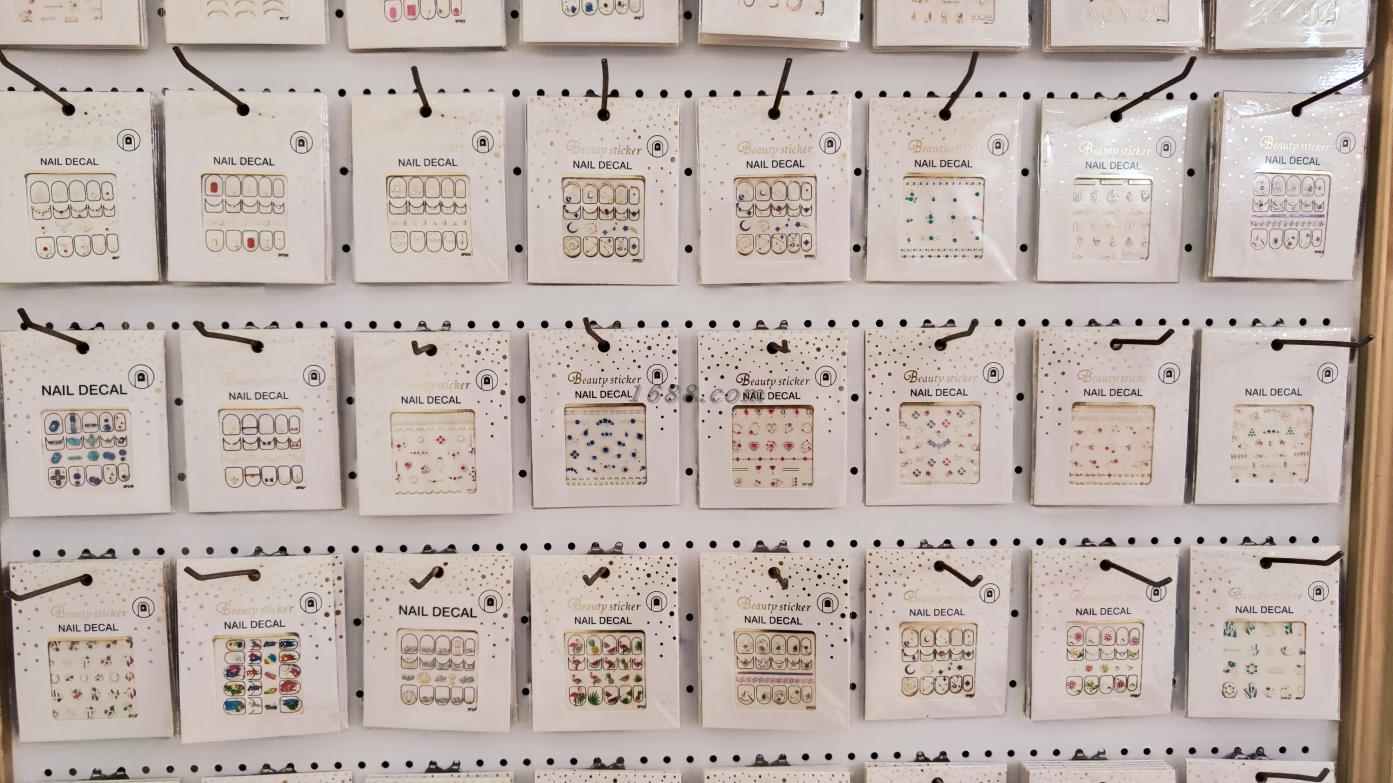 NAIL DECAL
NAIL DECAL
NAIL DECAL
Beauty sticker
NAIL DECAL
Beauty sticker
NAIL DECAL
Beauty sticker
NAIL DECAL
Beauty sticker
NAIL DECAL
Beauty sticker
NAIL DECAL
NAIL DECAL
Beauty sticker
NAIL DECAL
Beauty sticker
NAIL DECAL
Beauty sticker
NAIL DECAL
1688.com
Beauty sticker
NAIL DECAL
Beauty sticker
NAIL DECAL
Beauty sticker
NAIL DECAL
NAIL DECAL
Beauty sticker
NAIL DECAL
Beauty sticker
NAIL DECAL
NAIL DECAL
Beauty sticker
NAIL DECAL
Beauty sticker
NAIL DECAL
Beauty sticker
NAIL DECAL
Beauty sticker
NAIL DECAL
Beauty sticker
NAIL DECAL